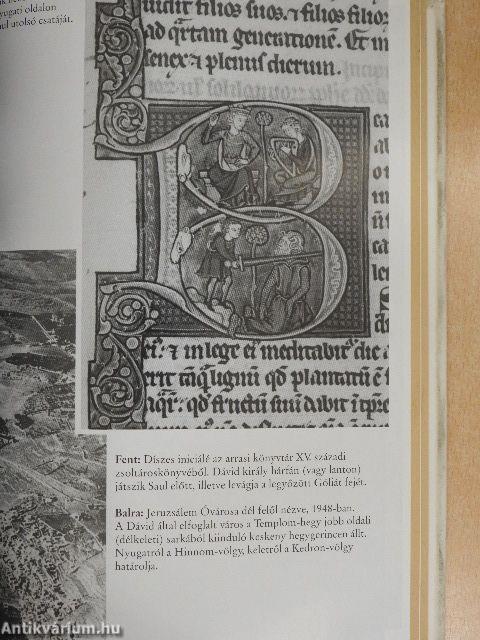 yugati oldalon
ul utolsó csatáját.
uidit filios suos ⁊ filios filior
ad q̄rtam generationē. Et m
senex ⁊ plenus dierum.
ei: ⁊ in lege ei meditabit die a
erit tāq̄ lignū qd̄ plantatū ē
aq̄r: qd̄ fructū suū dabit ī tpre
Fent: Díszes iniciálé az arrasi könyvtár XV. századi
zsoltároskönyvéből. Dávid király hárfán (vagy lanton)
játszik Saul előtt, illetve levágja a legyőzött Góliát fejét.
Balra: Jeruzsálem Óvárosa dél felől nézve, 1948-ban.
A Dávid által elfoglalt város a Templom-hegy jobb oldali
(délkeleti) sarkából kiinduló keskeny hegygerincen állt.
Nyugatról a Hinnom-völgy, keletről a Kedron-völgy
határolja.
Antikvárium.hu